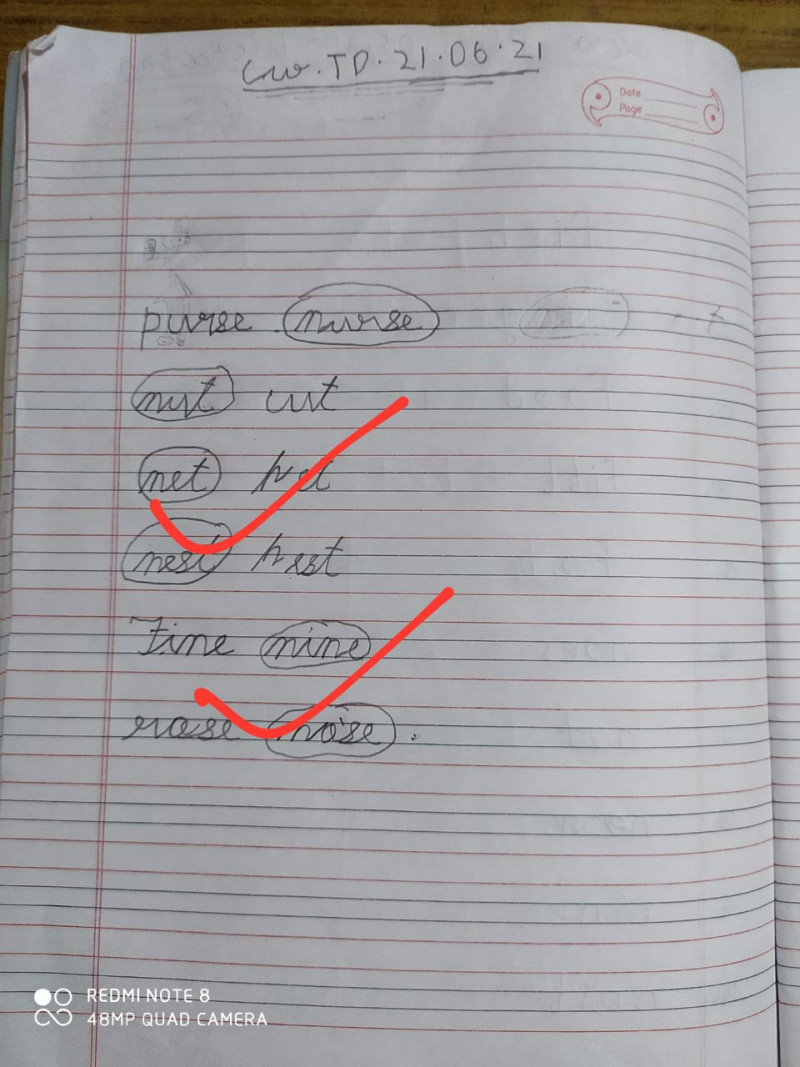 C.W. T.D. 21.06.21
Date
Page
purse nurse
nut cut
net het
nest hest
Fine nine
rose nose.
REDMI NOTE 8
48MP QUAD CAMERA